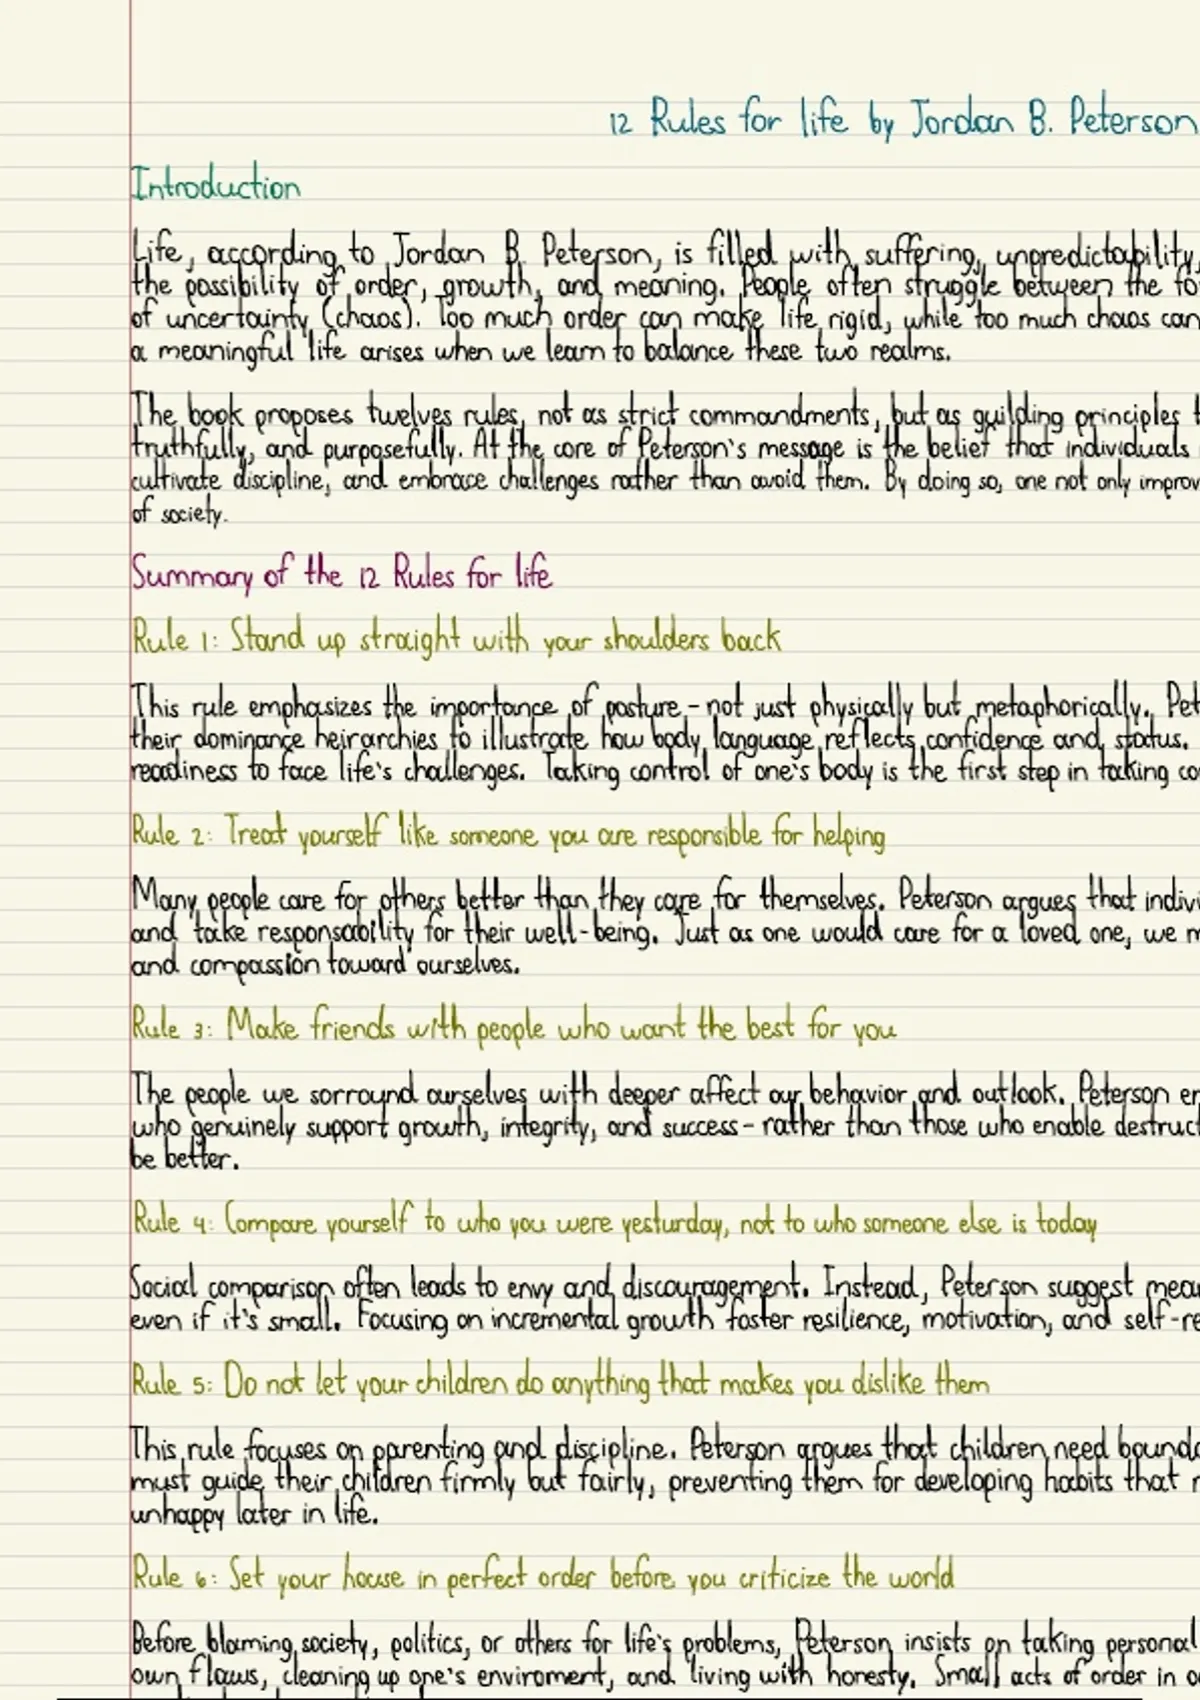 12 Rules for life by Jordan B. Peterson
Introduction
Life, according to Jordan B. Peterson, is filled with suffering, unpredictability,
the possibility of order, growth, and meaning. People often struggle between the fo
of uncertainty (chaos). Too much order can make life rigid, while too much chaos can
a meaningful life arises when we learn to balance these two realms.
The book proposes twelves rules, not as strict commandments, but as guilding principles t
truthfully, and purposefully. At the core of Peterson's message is the belief that individuals
cultivate discipline, and embrace challenges rather than avoid them. By doing so, one not only improv
of society.
Summary of the 12 Rules for life
Rule 1: Stand up straight with your shoulders back
This rule emphasizes the importance of posture - not just physically but metaphorically. Pet
their dominance heirarchies to illustrate how body language reflects confidence and status.
readiness to face life's challenges. Taking control of one's body is the first step in taking co
Rule 2: Treat yourself like someone you are responsible for helping
Many people care for others better than they care for themselves. Peterson argues that indivi
and take responsability for their well-being. Just as one would care for a loved one, we m
and compassion toward ourselves.
Rule 3: Make friends with people who want the best for you
The people we sorround ourselves with deeper affect our behavior and outlook. Peterson en
who genuinely support growth, integrity, and success - rather than those who enable destruct
be better.
Rule 4: Compare yourself to who you were yesturday, not to who someone else is today
Social comparison often leads to envy and discouragement. Instead, Peterson suggest meas
even if it's small. Focusing on incremental growth foster resilience, motivation, and self-re
Rule 5: Do not let your children do anything that makes you dislike them
This rule focuses on parenting and discipline. Peterson argues that children need bounda
must guide their children firmly but fairly, preventing them for developing habits that m
unhappy later in life.
Rule 6: Set your house in perfect order before you criticize the world
Before blaming society, politics, or others for life's problems, Peterson insists on taking personal
own flaws, cleaning up one's enviroment, and living with honesty. Small acts of order in o